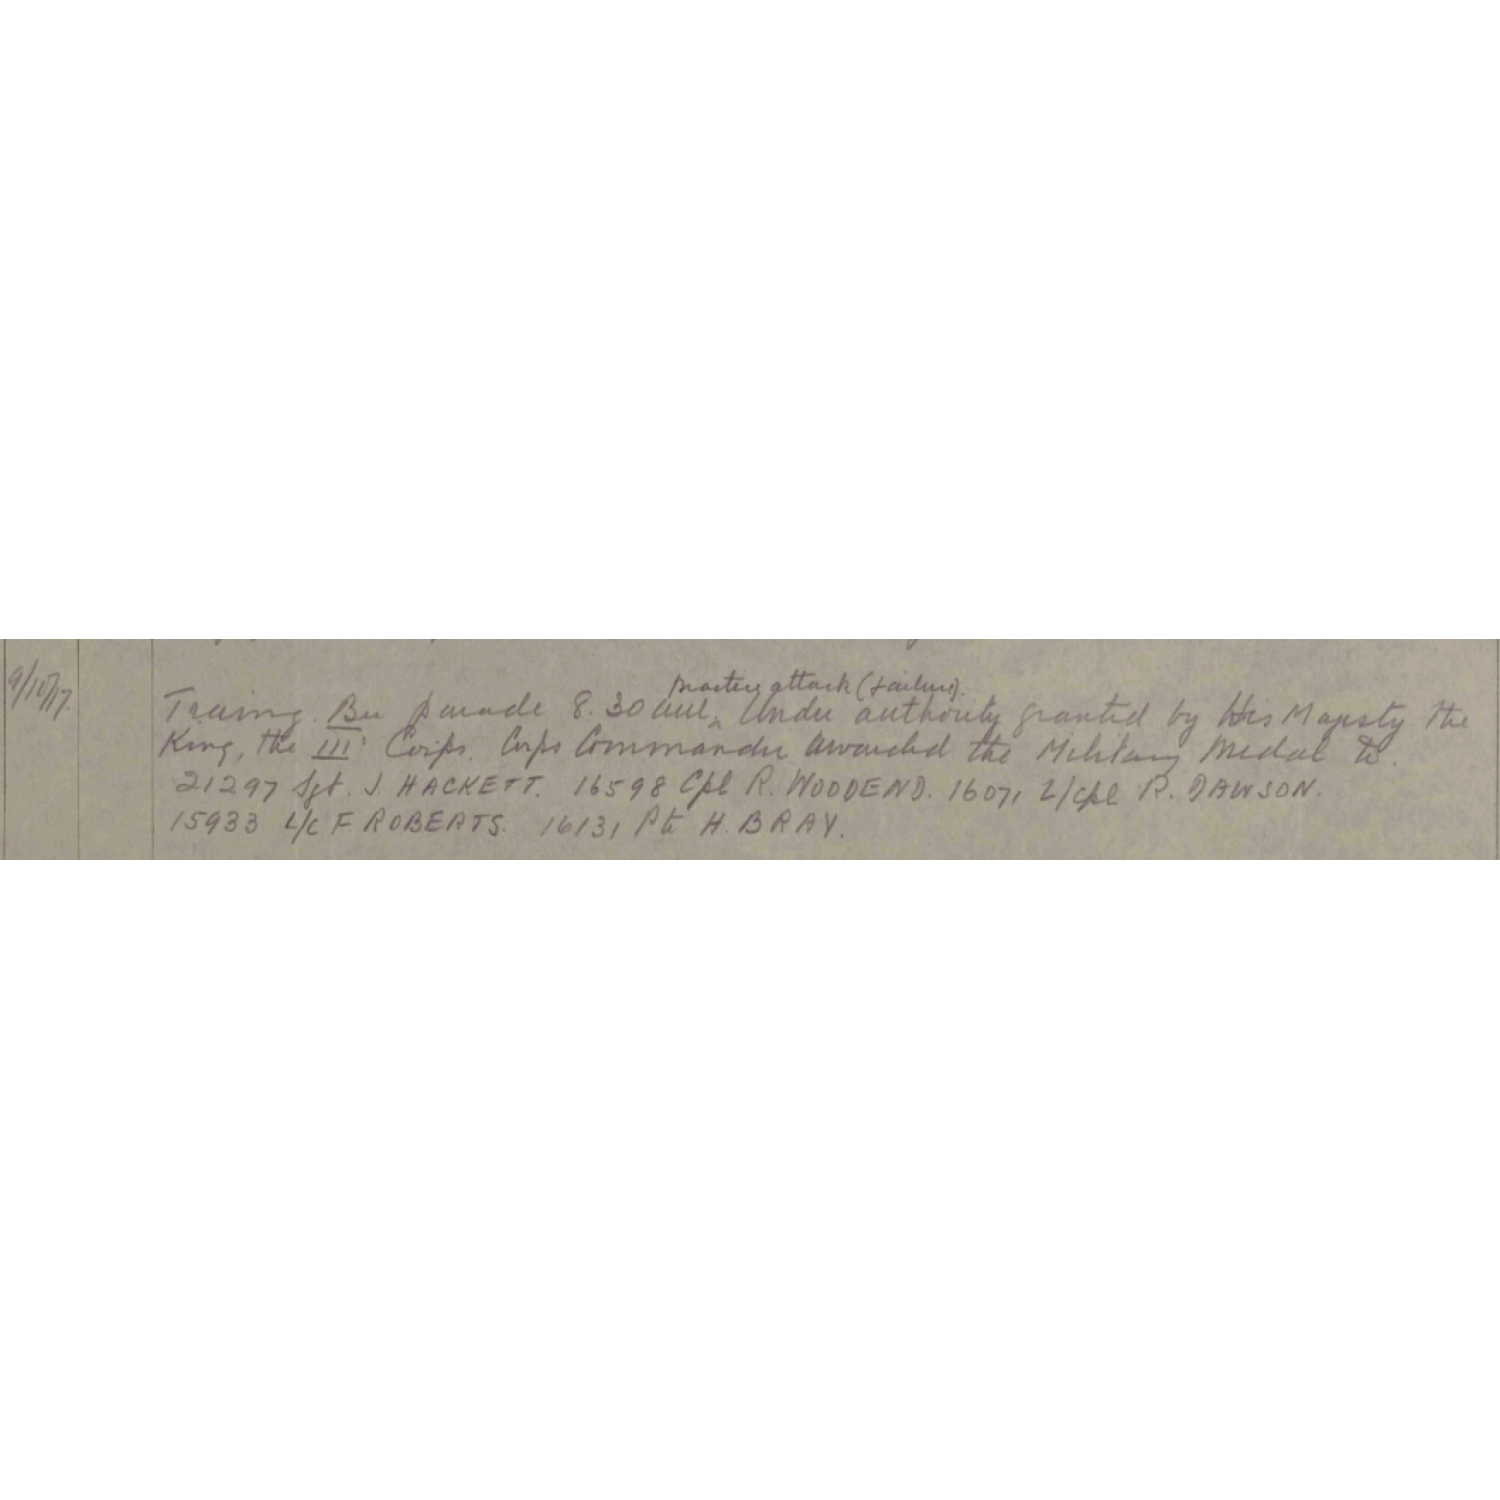 9/10/17
Practice attack (failure).
Training. Bn parade 8.30 am, Under authority granted by His Majesty the
King, the III Corps. Corps Commander awarded the Military Medal to.
21297 Sgt. J. HACKETT. 16598 Cpl R. WOODEND. 16071 L/cpl R. DAWSON.
15933 L/c F ROBERTS. 16131 Pte H. BRAY.